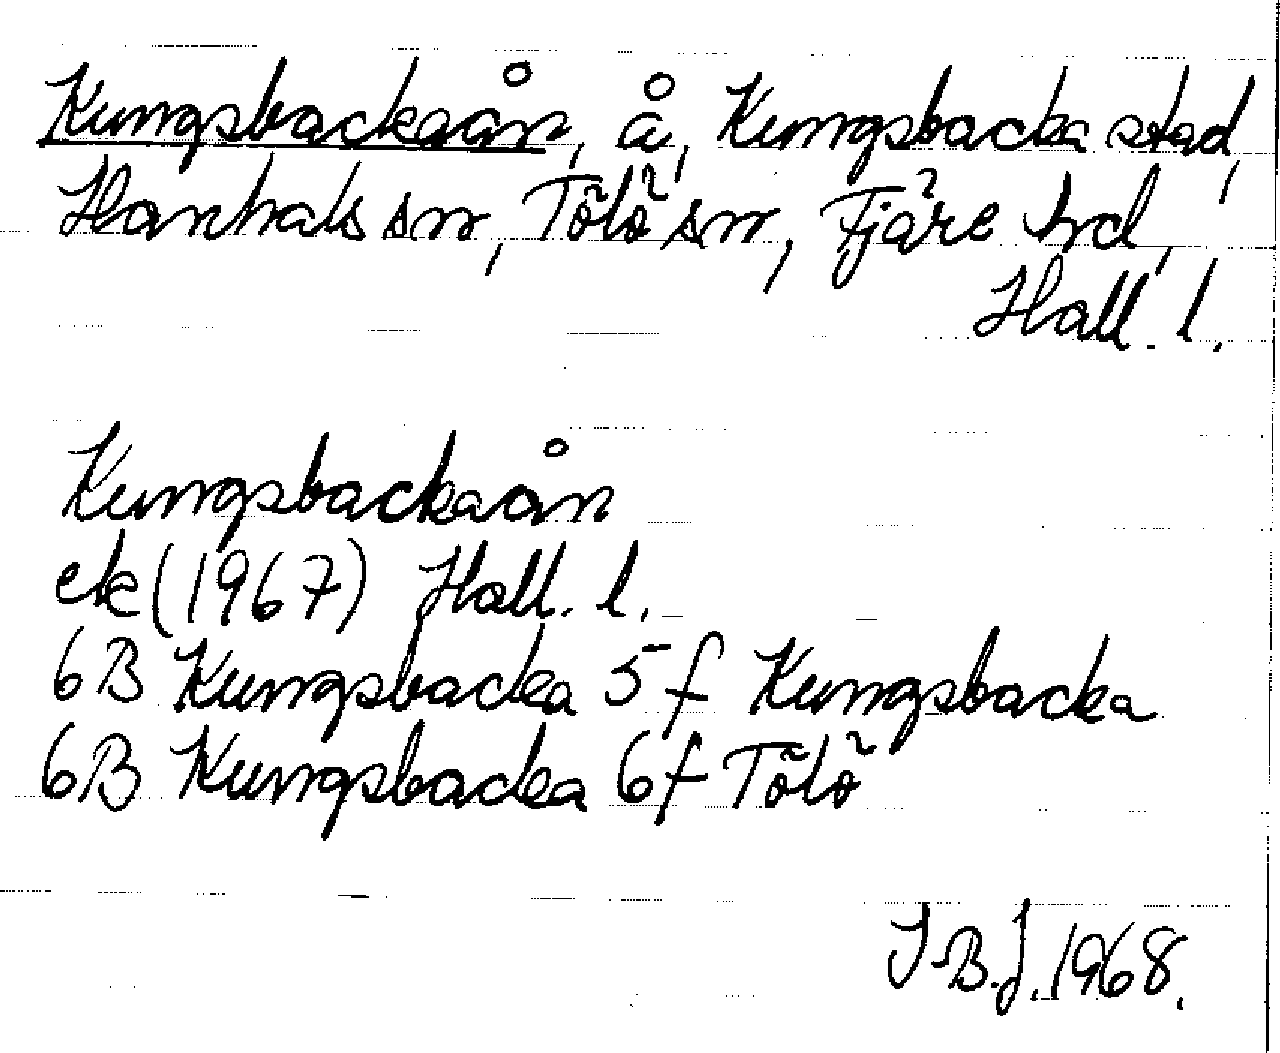 Kungsbackaån, å, Kungsbacka stad,
Hanhals sn, Tölö sn, Fjäre hd,
Hall. l.
Kungsbackaån
ek (1967) Hall. l.
6B Kungsbacka 5f Kungsbacka
6B Kungsbacka 6f Tölö
I-B.J. 1968.